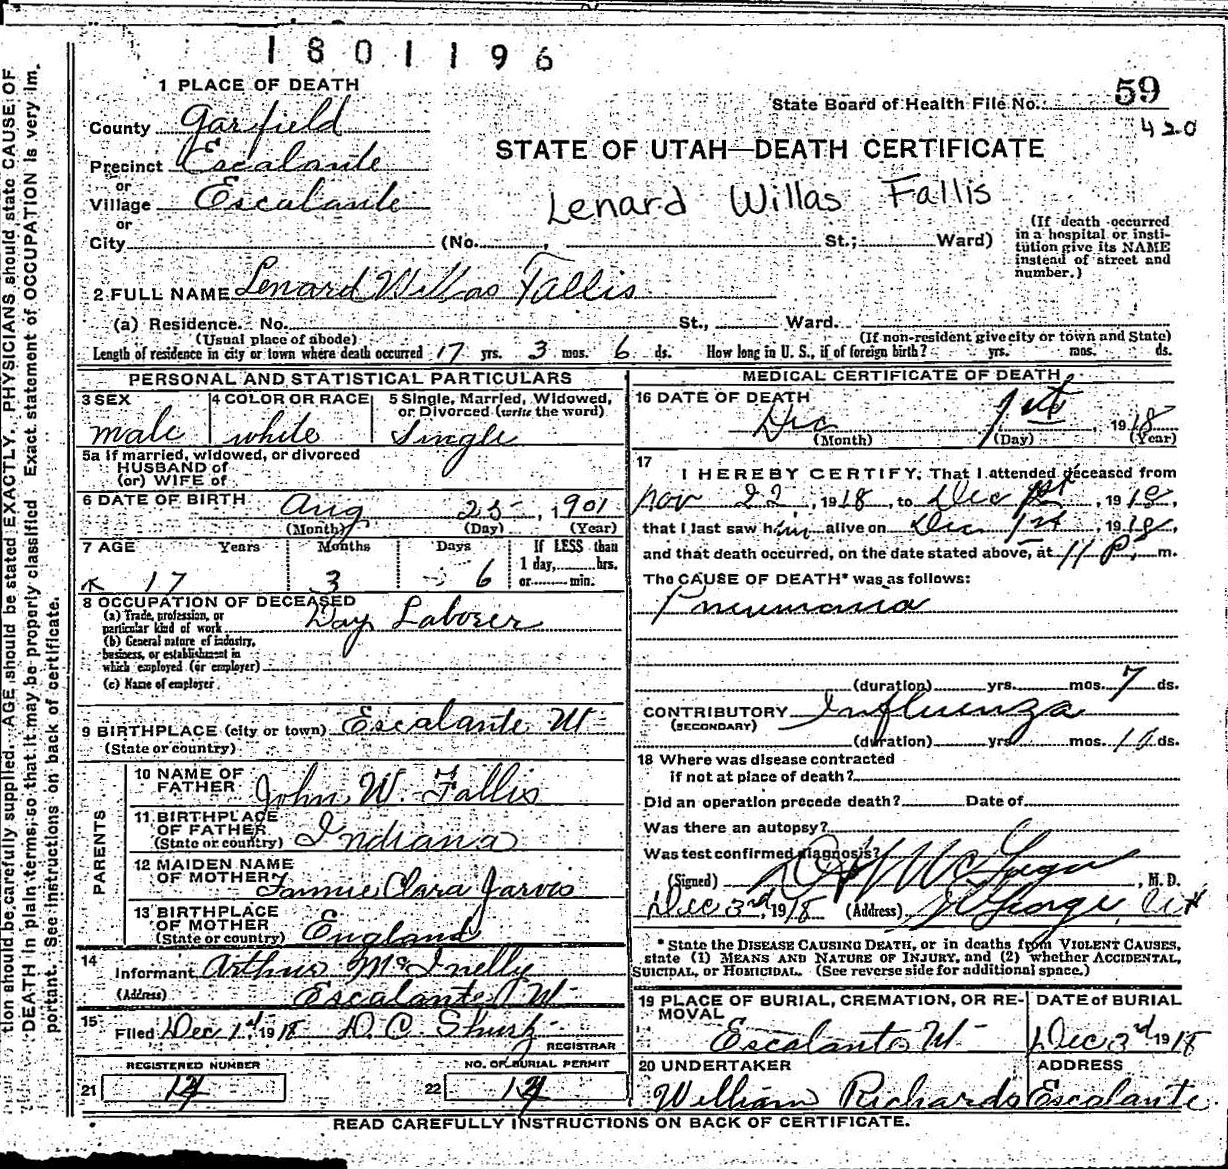 1801196
1 PLACE OF DEATH
State Board of Health File No. 59
420
County Garfield
STATE OF UTAH—DEATH CERTIFICATE
Precinct Escalante
or
Village Escalante
Lenard Willas Fallis
or
City (No. , St.; Ward)
(If death occurred in a hospital or institution give its NAME instead of street and number.)
2 FULL NAME Lenard Willas Fallis
(a) Residence. No. St., Ward.
(Usual place of abode) (If non-resident give city or town and State)
Length of residence in city or town where death occurred 17 yrs. 3 mos. 6 ds. How long in U. S., if of foreign birth? yrs. mos. ds.
PERSONAL AND STATISTICAL PARTICULARS
3 SEX 4 COLOR OR RACE 5 Single, Married, Widowed, or Divorced (write the word)
male white Single
5a If married, widowed, or divorced
HUSBAND of
(or) WIFE of
6 DATE OF BIRTH Aug 25, 1901
(Month) (Day) (Year)
7 AGE Years Months Days If LESS than
1 day, hrs.
17 3 6 or min.
8 OCCUPATION OF DECEASED
(a) Trade, profession, or
particular kind of work Day Laborer
(b) General nature of industry,
business, or establishment in
which employed (or employer)
(c) Name of employer
9 BIRTHPLACE (city or town) Escalante Ut
(State or country)
PARENTS
10 NAME OF
FATHER John W. Fallis
11 BIRTHPLACE
OF FATHER Indiana
(State or country)
12 MAIDEN NAME
OF MOTHER Fannie Clara Jarvis
13 BIRTHPLACE
OF MOTHER England
(State or country)
14
Informant Arthur McInelly
(Address) Escalante Ut
15
Filed Dec 1st 1918 D. C. Shurtz
REGISTRAR
REGISTERED NUMBER NO. OF BURIAL PERMIT
21 22
MEDICAL CERTIFICATE OF DEATH
16 DATE OF DEATH
Dec 1st, 1918
(Month) (Day) (Year)
17
I HEREBY CERTIFY, That I attended deceased from
Nov 22, 1918, to Dec 1st, 1918,
that I last saw him alive on Dec 1st, 1918,
and that death occurred, on the date stated above, at 11 P. m.
The CAUSE OF DEATH* was as follows:
Pneumonia
(duration) yrs. mos. 7 ds.
CONTRIBUTORY Influenza
(SECONDARY)
(duration) yrs. mos. 10 ds.
18 Where was disease contracted
if not at place of death?
Did an operation precede death? Date of
Was there an autopsy?
Was test confirmed diagnosis?
(Signed) , M. D.
Dec 3rd, 1918 (Address) St George, Ut
* State the DISEASE CAUSING DEATH, or in deaths from VIOLENT CAUSES,
state (1) MEANS AND NATURE OF INJURY, and (2) whether ACCIDENTAL,
SUICIDAL, or HOMICIDAL. (See reverse side for additional space.)
19 PLACE OF BURIAL, CREMATION, OR RE- DATE of BURIAL
MOVAL
Escalante Ut Dec 3rd 1918
20 UNDERTAKER ADDRESS
William Richards Escalante
READ CAREFULLY INSTRUCTIONS ON BACK OF CERTIFICATE.
tion should be carefully supplied. AGE should be stated EXACTLY. PHYSICIANS should state CAUSE OF
DEATH in plain terms, so that it may be properly classified. Exact statement of OCCUPATION is very im-
portant. See instructions on back of certificate.